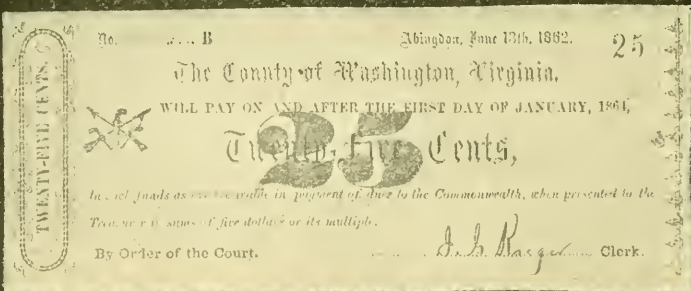 TWENTY-FIVE CENTS.
No. B Abingdon, June 13th, 1862. 25
The County of Washington, Virginia,
WILL PAY ON AND AFTER THE FIRST DAY OF JANUARY, 1864,
25
Twenty-Five Cents,
In funds as in payment of dues to the Commonwealth, when presented to the
Treasurer in sums of five dollars or its multiple.
By Order of the Court. Clerk.